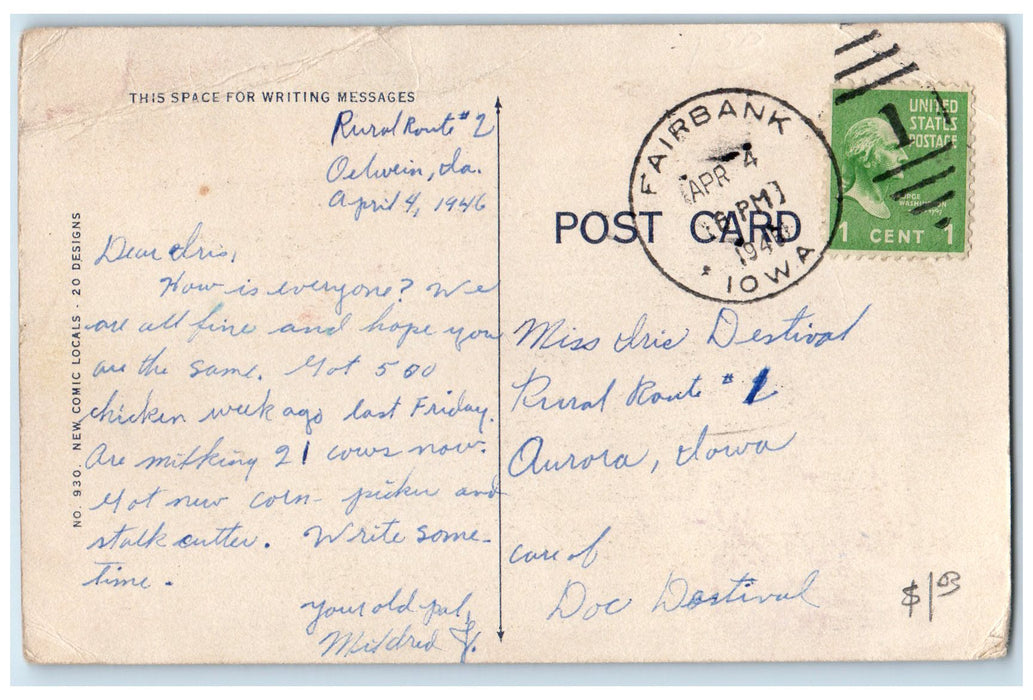 THIS SPACE FOR WRITING MESSAGES
Rural Route #2
Oelwein, Ia.
April 4, 1946
Dear Iris,
How is everyone? We
are all fine and hope you
are the same. Got 500
chicken week ago last Friday.
Are milking 21 cows now.
Got new corn-picker and
stalk cutter. Write some-
time.
Your old pal,
Mildred
NO. 930. NEW COMIC LOCALS - 20 DESIGNS
POST CARD
FAIRBANK
APR 4
6 PM
IOWA
UNITED
STATES
POSTAGE
WASHINGTON
1 CENT 1
Miss Iris Destival
Rural Route #
Aurora, Iowa
care of
Doc Destival